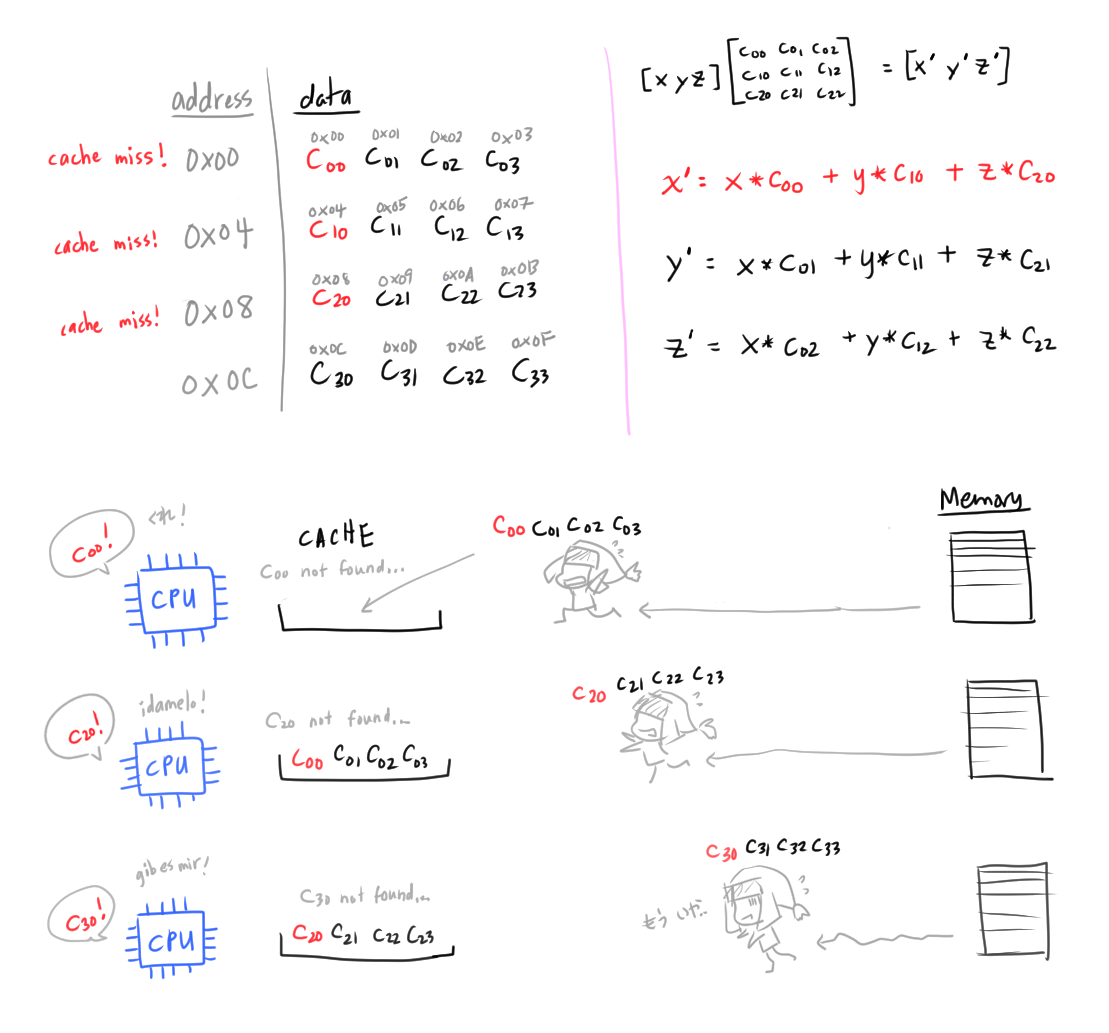 address
data
cache miss!
0x00
0x00 0x01 0x02 0x03
C00 C01 C02 C03
cache miss!
0x04
0x04 0x05 0x06 0x07
C10 C11 C12 C13
cache miss!
0x08
0x08 0x09 0x0A 0x0B
C20 C21 C22 C23
0x0C
0x0C 0x0D 0x0E 0x0F
C30 C31 C32 C33
[x y z] [C00 C01 C02
C10 C11 C12
C20 C21 C22] = [x' y' z']
x' = x*C00 + y*C10 + z*C20
y' = x*C01 + y*C11 + z*C21
z' = x*C02 + y*C12 + z*C22
C00!
くれ!
CPU
CACHE
C00 not found...
C00 C01 C02 C03
Memory
C20!
¡damelo!
CPU
C20 not found...
C00 C01 C02 C03
C20 C21 C22 C23
C30!
gib es mir!
CPU
C30 not found...
C20 C21 C22 C23
C30 C31 C32 C33
もういや..